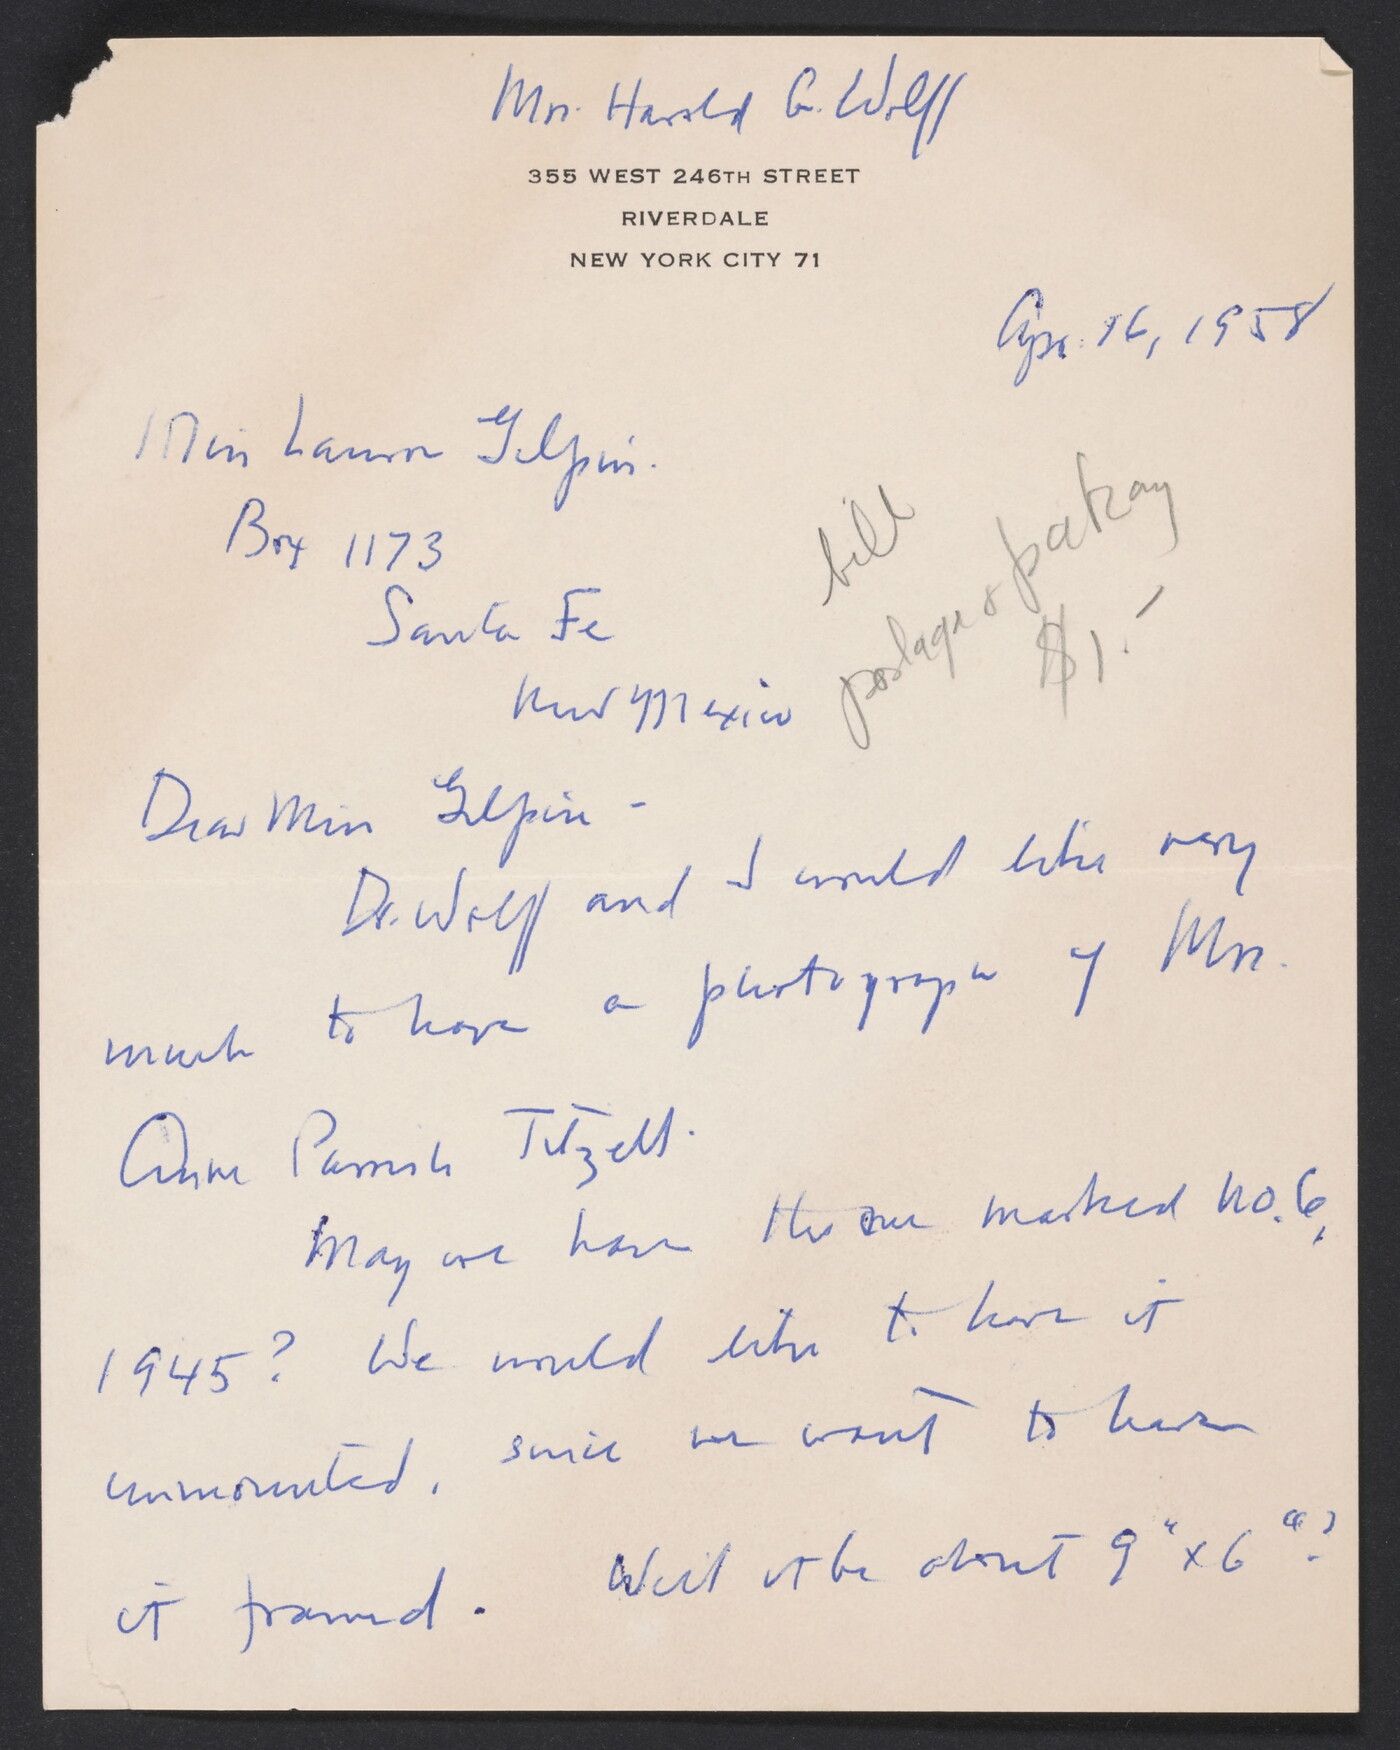 Mrs. Harold G. Wolff
355 WEST 246TH STREET
RIVERDALE
NEW YORK CITY 71
Apr. 16, 1958
Miss Laura Gilpin.
Box 1173
Santa Fe
New Mexico
bill
postage &
$1.-
Dear Miss Gilpin -
Dr. Wolff and I would like very
much to have a photograph of Mrs.
Anne Parrish Titzell.
May we have the one marked No. 6,
1945? We would like to have it
unmounted, since we want to have
it framed. Will it be about 9" x 6"?